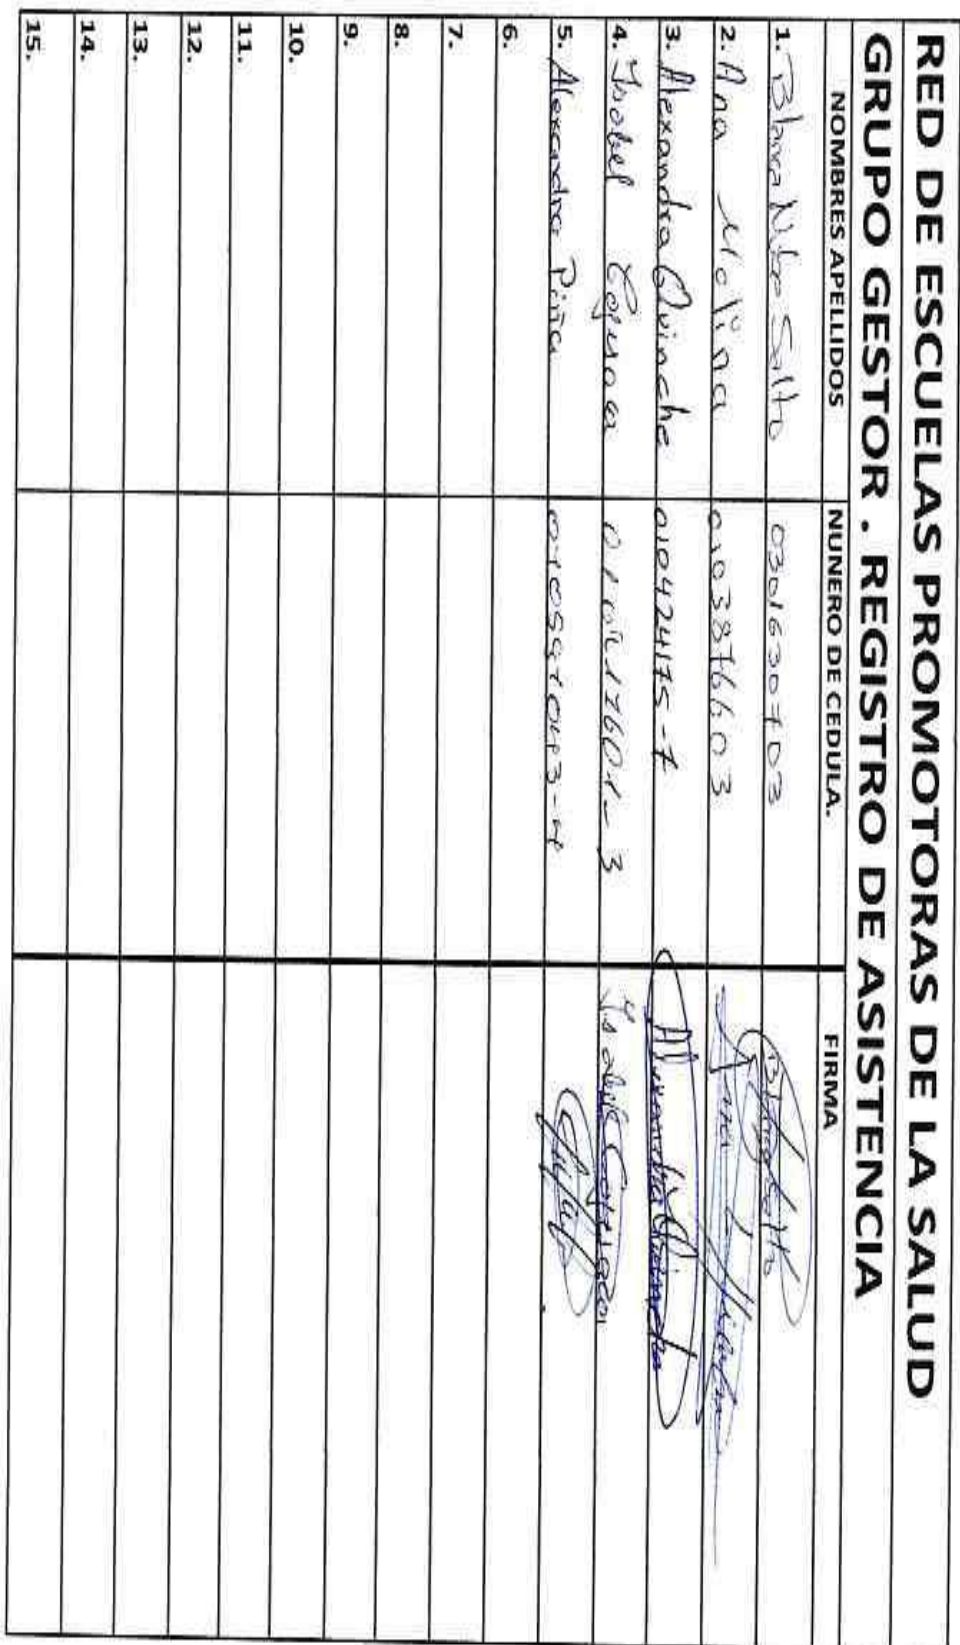 RED DE ESCUELAS PROMOTORAS DE LA SALUD
GRUPO GESTOR . REGISTRO DE ASISTENCIA
NOMBRES APELLIDOS NUNERO DE CEDULA. FIRMA
1. Blanca Salto 0301630703 Blanca Salto
2. Ana Molina 0103876603
3. Alexandra Quinche 010424175-7 Alexandra Quinche
4. Isabel Isabel
5. Alexandra Piña
6.
7.
8.
9.
10.
11.
12.
13.
14.
15.